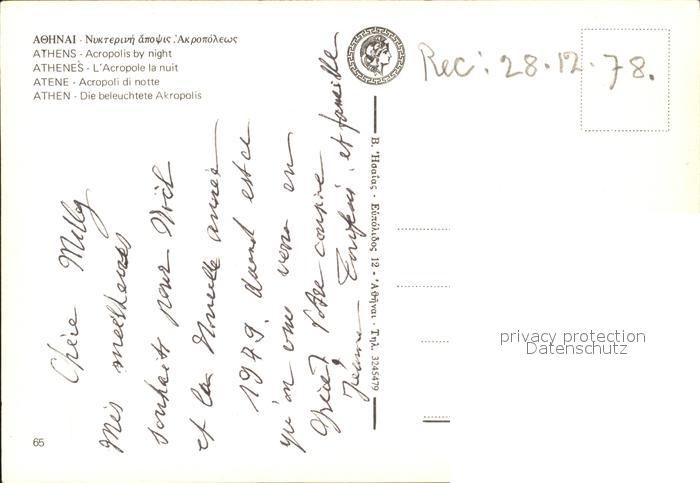 ΑΘΗΝΑΙ - Νυκτερινὴ ἄποψις Ἀκροπόλεως
ATHENS - Acropolis by night
ATHENES - L'Acropole la nuit
ATENE - Acropoli di notte
ATHEN - Die beleuchtete Akropolis
Rec: 28.12.78.
Chère Milly
Mes meilleures
souhaits pour Noël
et la Nouvelle année
1979. Quand est ce
qu'on vous verra en
Grèce? Votre cousine
Jeanne et famille
Β. Ἡσαΐας - Εὐπόλιδος 12 - Ἀθῆναι - Τηλ. 3245479
65
privacy protection
Datenschutz